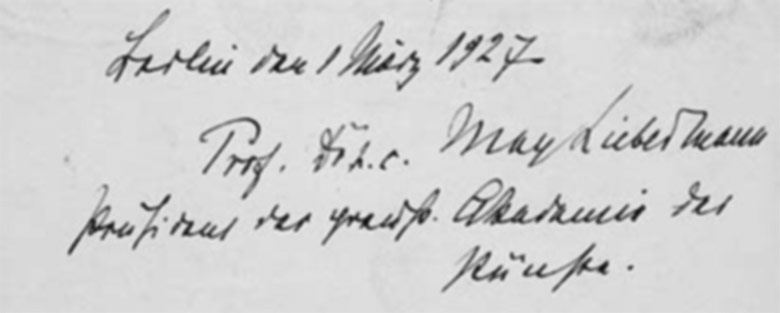 Berlin den 1 März 1927
Prof. Dr h. c. Max Liebermann
Präsident der preuss. Akademie der
Künste.